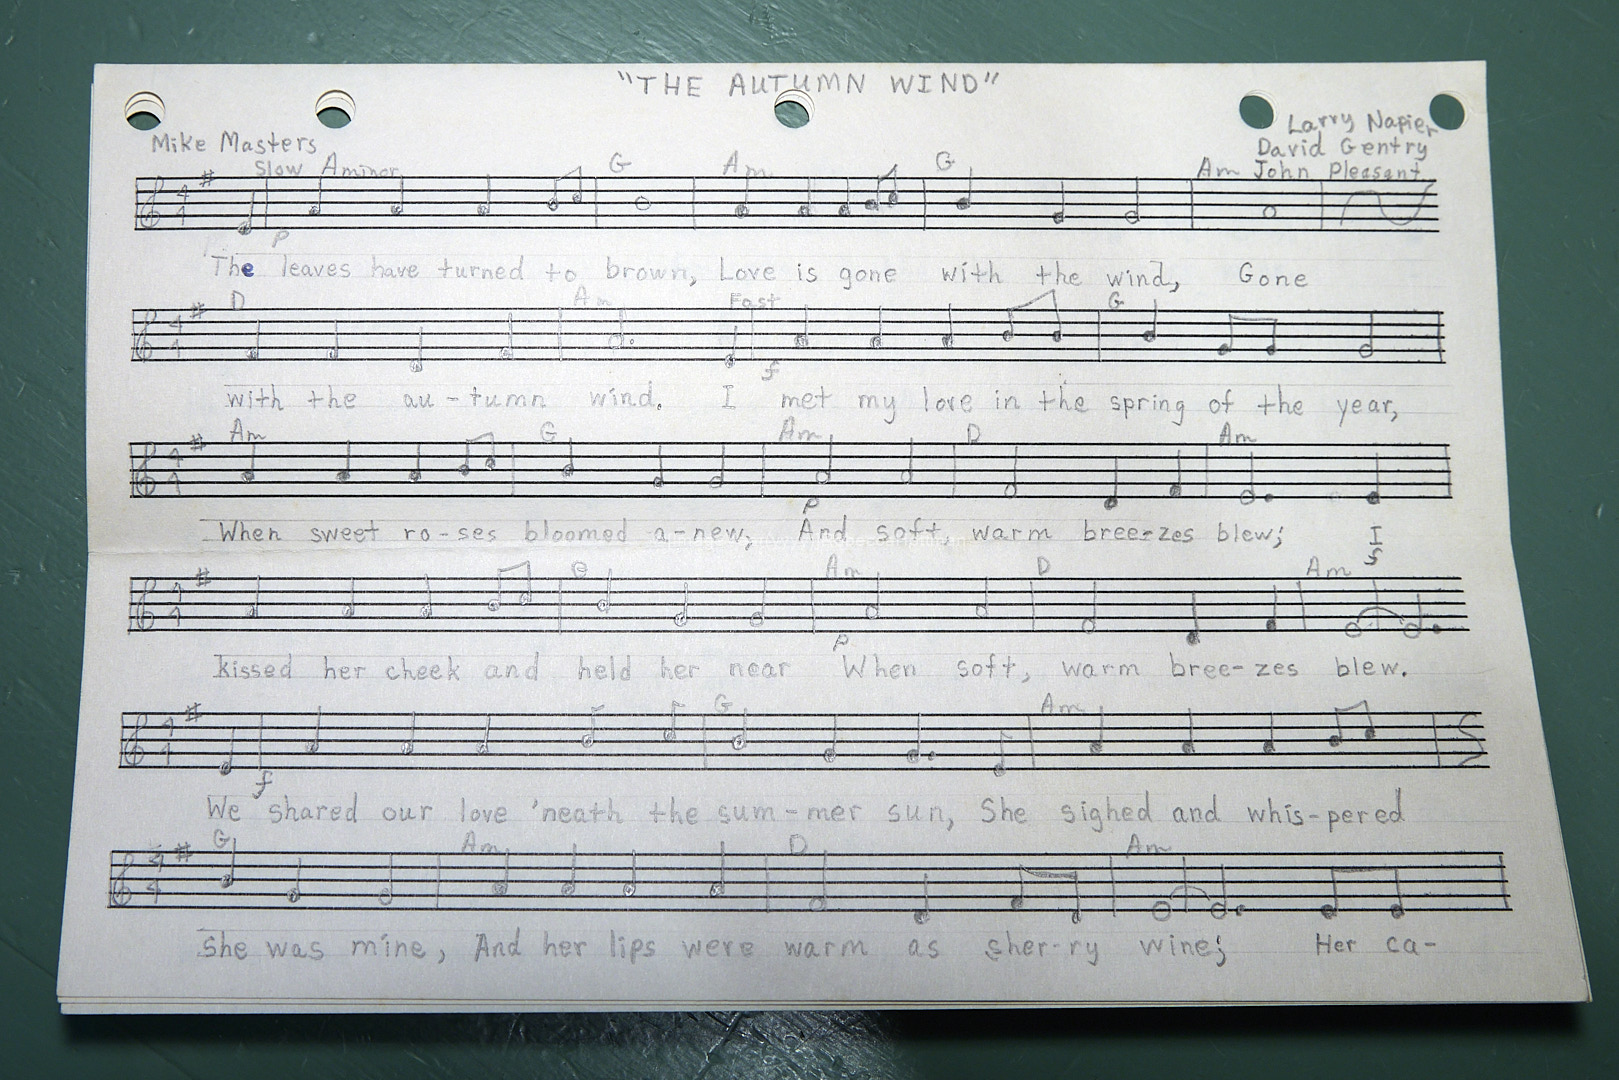 "THE AUTUMN WIND"
Mike Masters
Larry Napier
David Gentry
John Pleasant
Slow Aminor G Am G Am
p
The leaves have turned to brown, Love is gone with the wind, Gone
D Am Fast G
f
with the au-tumn wind. I met my love in the spring of the year,
Am G Am D Am
p
When sweet ro-ses bloomed a-new; And soft, warm bree-zes blew; I
f
G Am D Am
p
kissed her cheek and held her near When soft, warm bree-zes blew.
G Am
f
We shared our love 'neath the sum-mer sun, She sighed and whis-pered
G Am D Am
She was mine, And her lips were warm as sher-ry wine; Her ca-